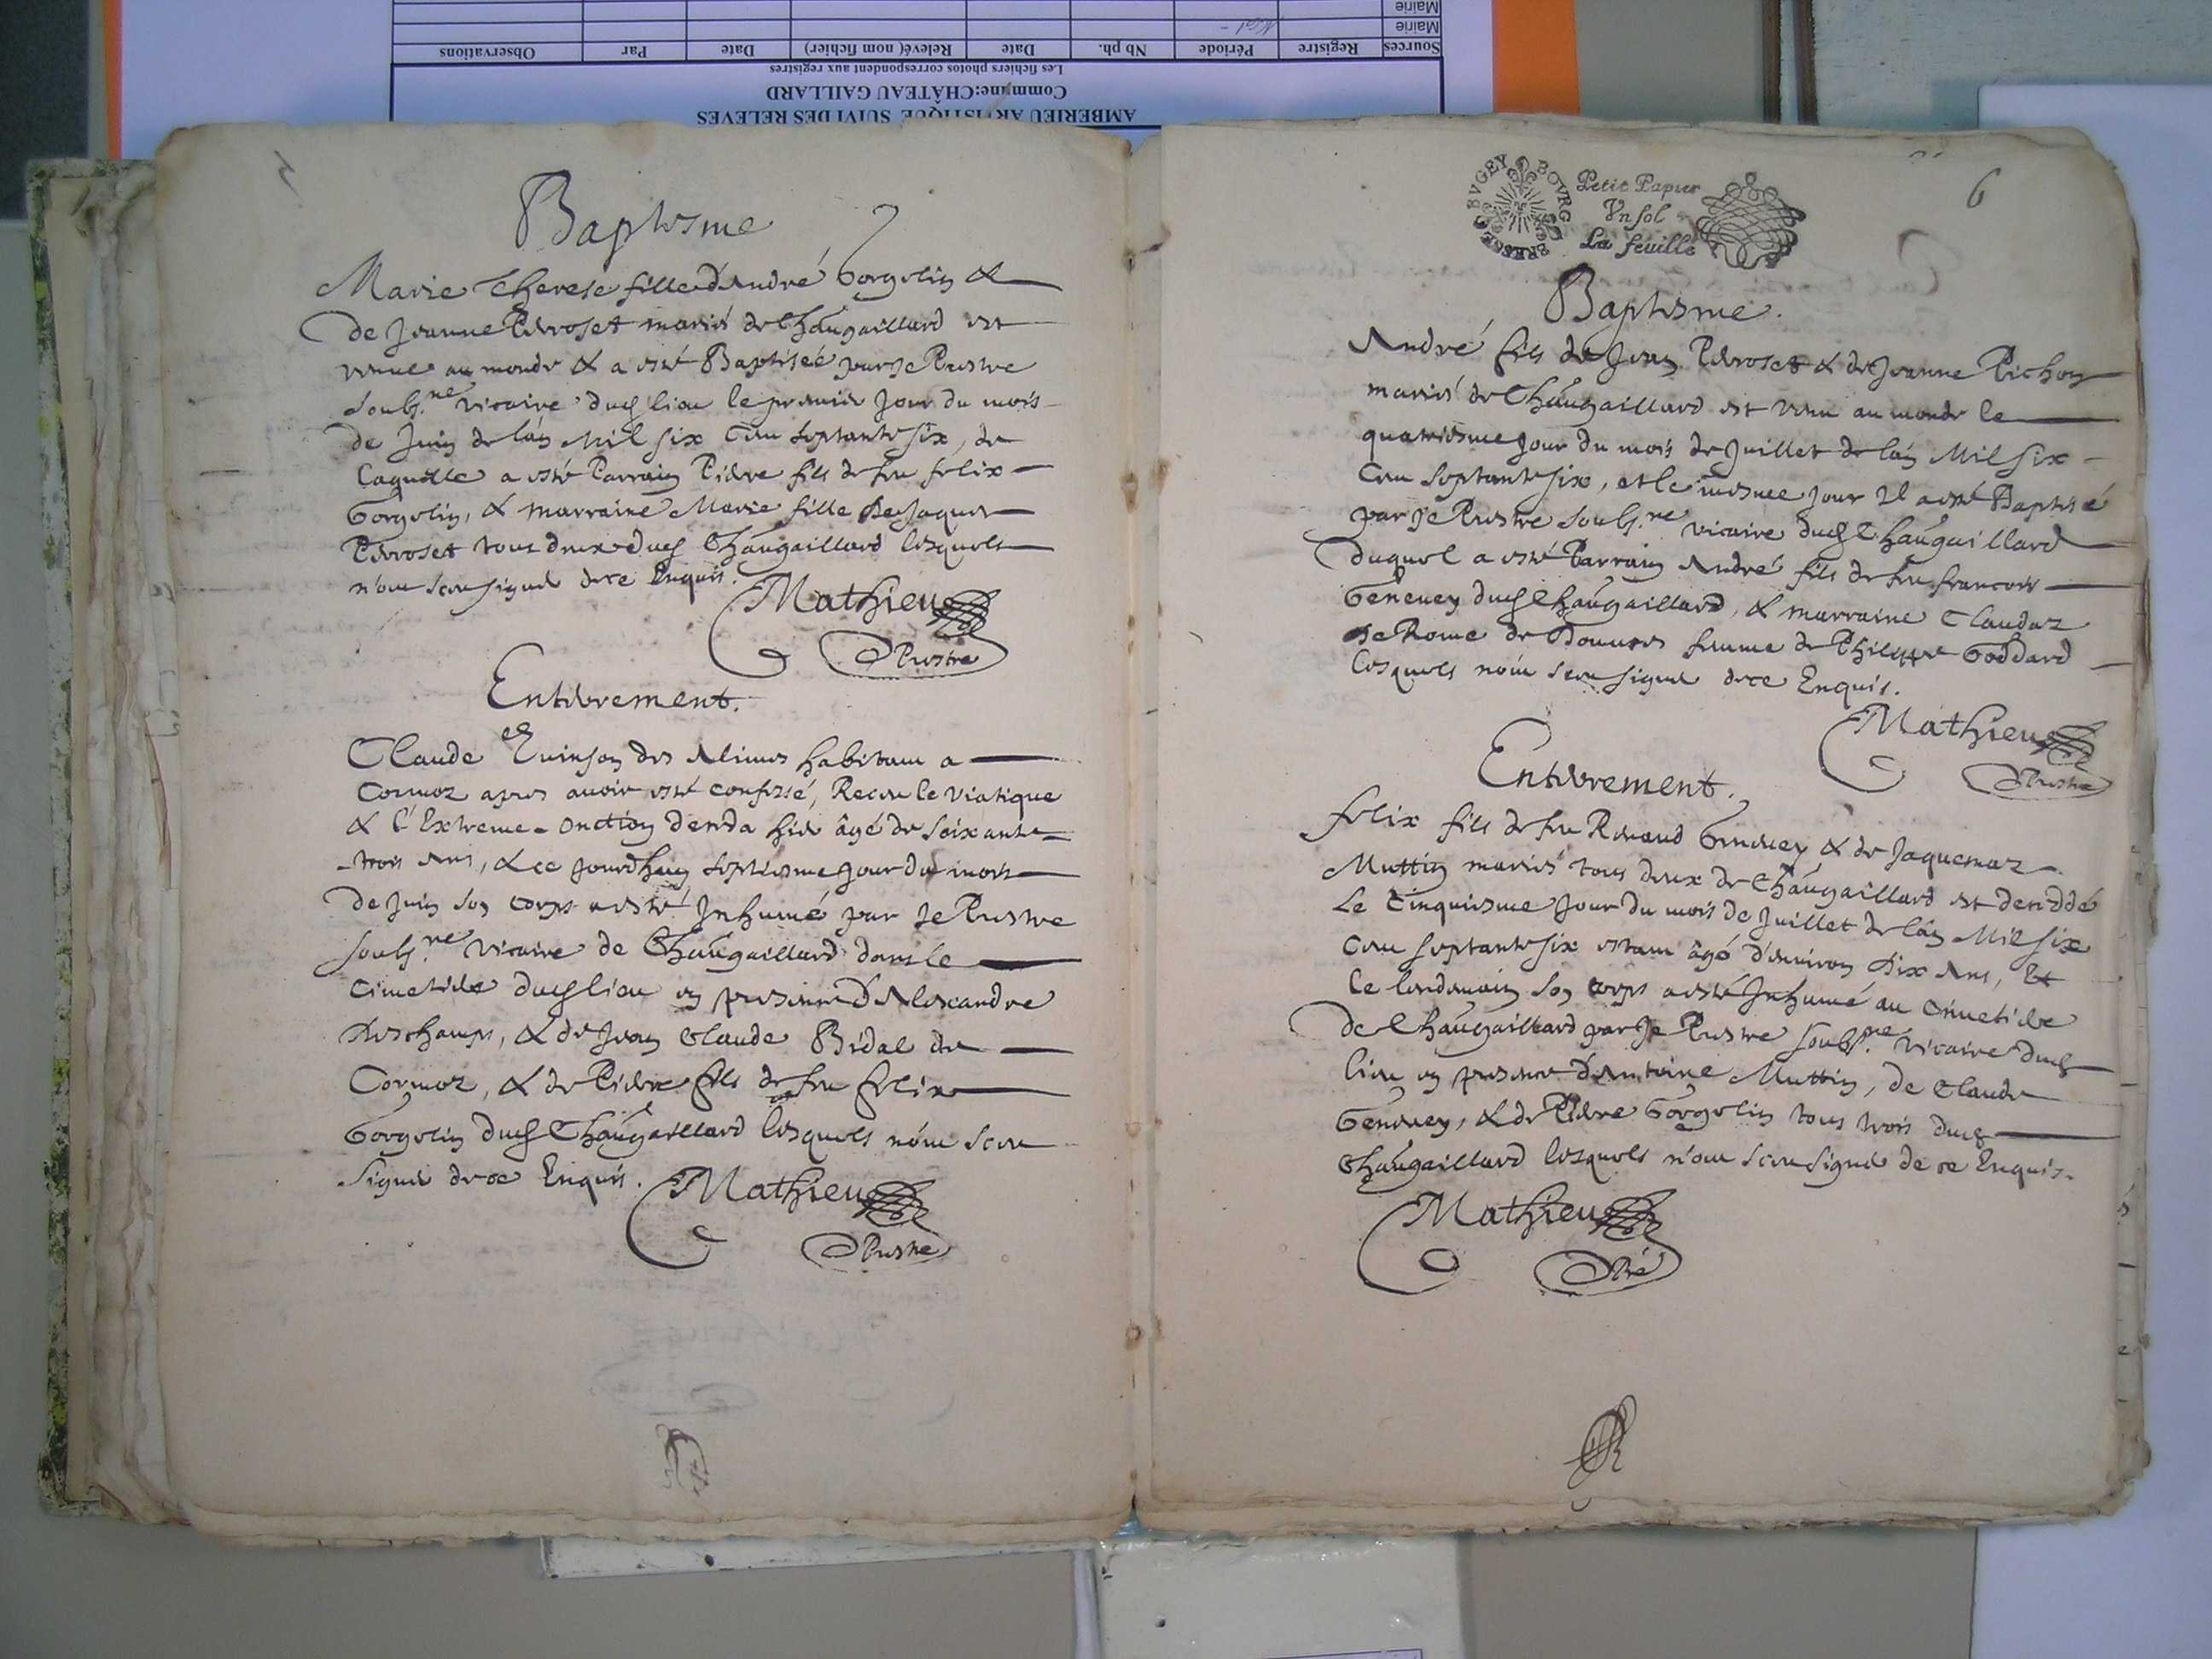 AMBERIEU ARTISTIQUE SUIVI DES RELEVES
Commune:CHÂTEAU GAILLARD
Les fichiers photos correspondent aux registres
Sources Registre Période Nb ph. Date Relevé( nom fichier) Date Par Observations
Mairie
Mairie
Baptesme
Marie Therese fille d'André Gorgelin &
de Jeanne Perroset mariés de Chaũgaillard est
venue au monde & a esté Baptiseé par Je Prestre
soubs.ne vicaire dud lieu le premier Jour du mois
de Juin de l'an Mil six Cen septante six, de
laquelle a esté Parrain Pierre fils de feu felix
Gorgelin, & marraine Marie fille de Jaques
Perroset tous deux dud Chaũgaillard lesquels
n'on sceu signer de ce Enquis.
Mathieu
Prestre
Enterrement.
Claude Guinson des Alimes habitant a
Cormoz apres avoir esté confessé, Receu le viatique
& l'Extreme-onction deceda hier âgé de soixante
-trois Ans, & ce jourdhuy septiesme Jour du mois
de Juin son corps a esté Jnhumé par Je Prestre
soubs.ne vicaire de Chaũgaillard dans le
Cimetiere dud lieu en presence d'Alexandre
Deschamps, & de Jean Claude Bidal de
Cormoz, & de Pierre fils de feu felix
Gorgelin dud Chaũgaillard lesquels n'on sceu
signer de ce Enquis.
Mathieu
Prestre
6
BVGEY BOVRG BRESSE
Petit Papier
Vn sol
La feuille
Baptesme.
André fils de Jean Perroset & de Jeanne Pichon
mariés de Chaũgaillard est venu au monde le
quatriesme Jour du mois de Juillet de l'an Mil six
Cen septante six, et le mesme Jour Il a esté Baptisé
par Je Prestre soubs.ne vicaire dud Chaũgaillard
duquel a esté Parrain André fils de feu francois
Genevey dud Chaũgaillard, & marraine Claudaz
de Rome de Douvres femme de Philippe Goddard
lesquels n'on sceu signer de ce Enquis.
Mathieu
Prestre
Enterrement.
felix fils de feu Renaud Genevey & de Jaquemaz
Muttin mariés tous deux de Chaũgaillard est decedé
Le Cinquiesme Jour du mois de Juillet de l'an Mil six
Cen septante six estant âgé d'environ dix Ans, Et
le lendemain son corps a esté Jnhumé au Cimetiere
de Chaũgaillard par Je Prestre soubs.ne vicaire dud
lieu en presence d'Antoine Muttin, de Claude
Genevey, & de Pierre Gorgelin tous trois dud
Chaũgaillard lesquels n'on sceu signer de ce Enquis.
Mathieu